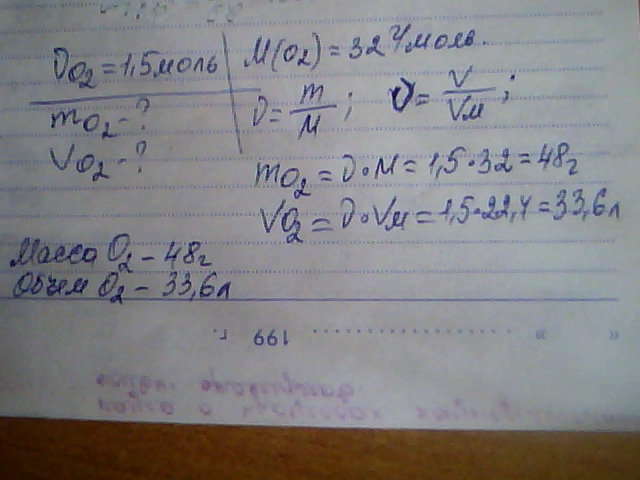 υO₂ = 1,5 моль
mO₂ - ?
VO₂ - ?
M(O₂) = 32 г/моль.
υ = m/M ; υ = V/Vм ;
mO₂ = υ • M = 1,5 • 32 = 48 г
VO₂ = υ • Vм = 1,5 • 22,4 = 33,6 л
Масса O₂ – 48 г
Объем O₂ – 33,6 л
« » .................... 199 г.